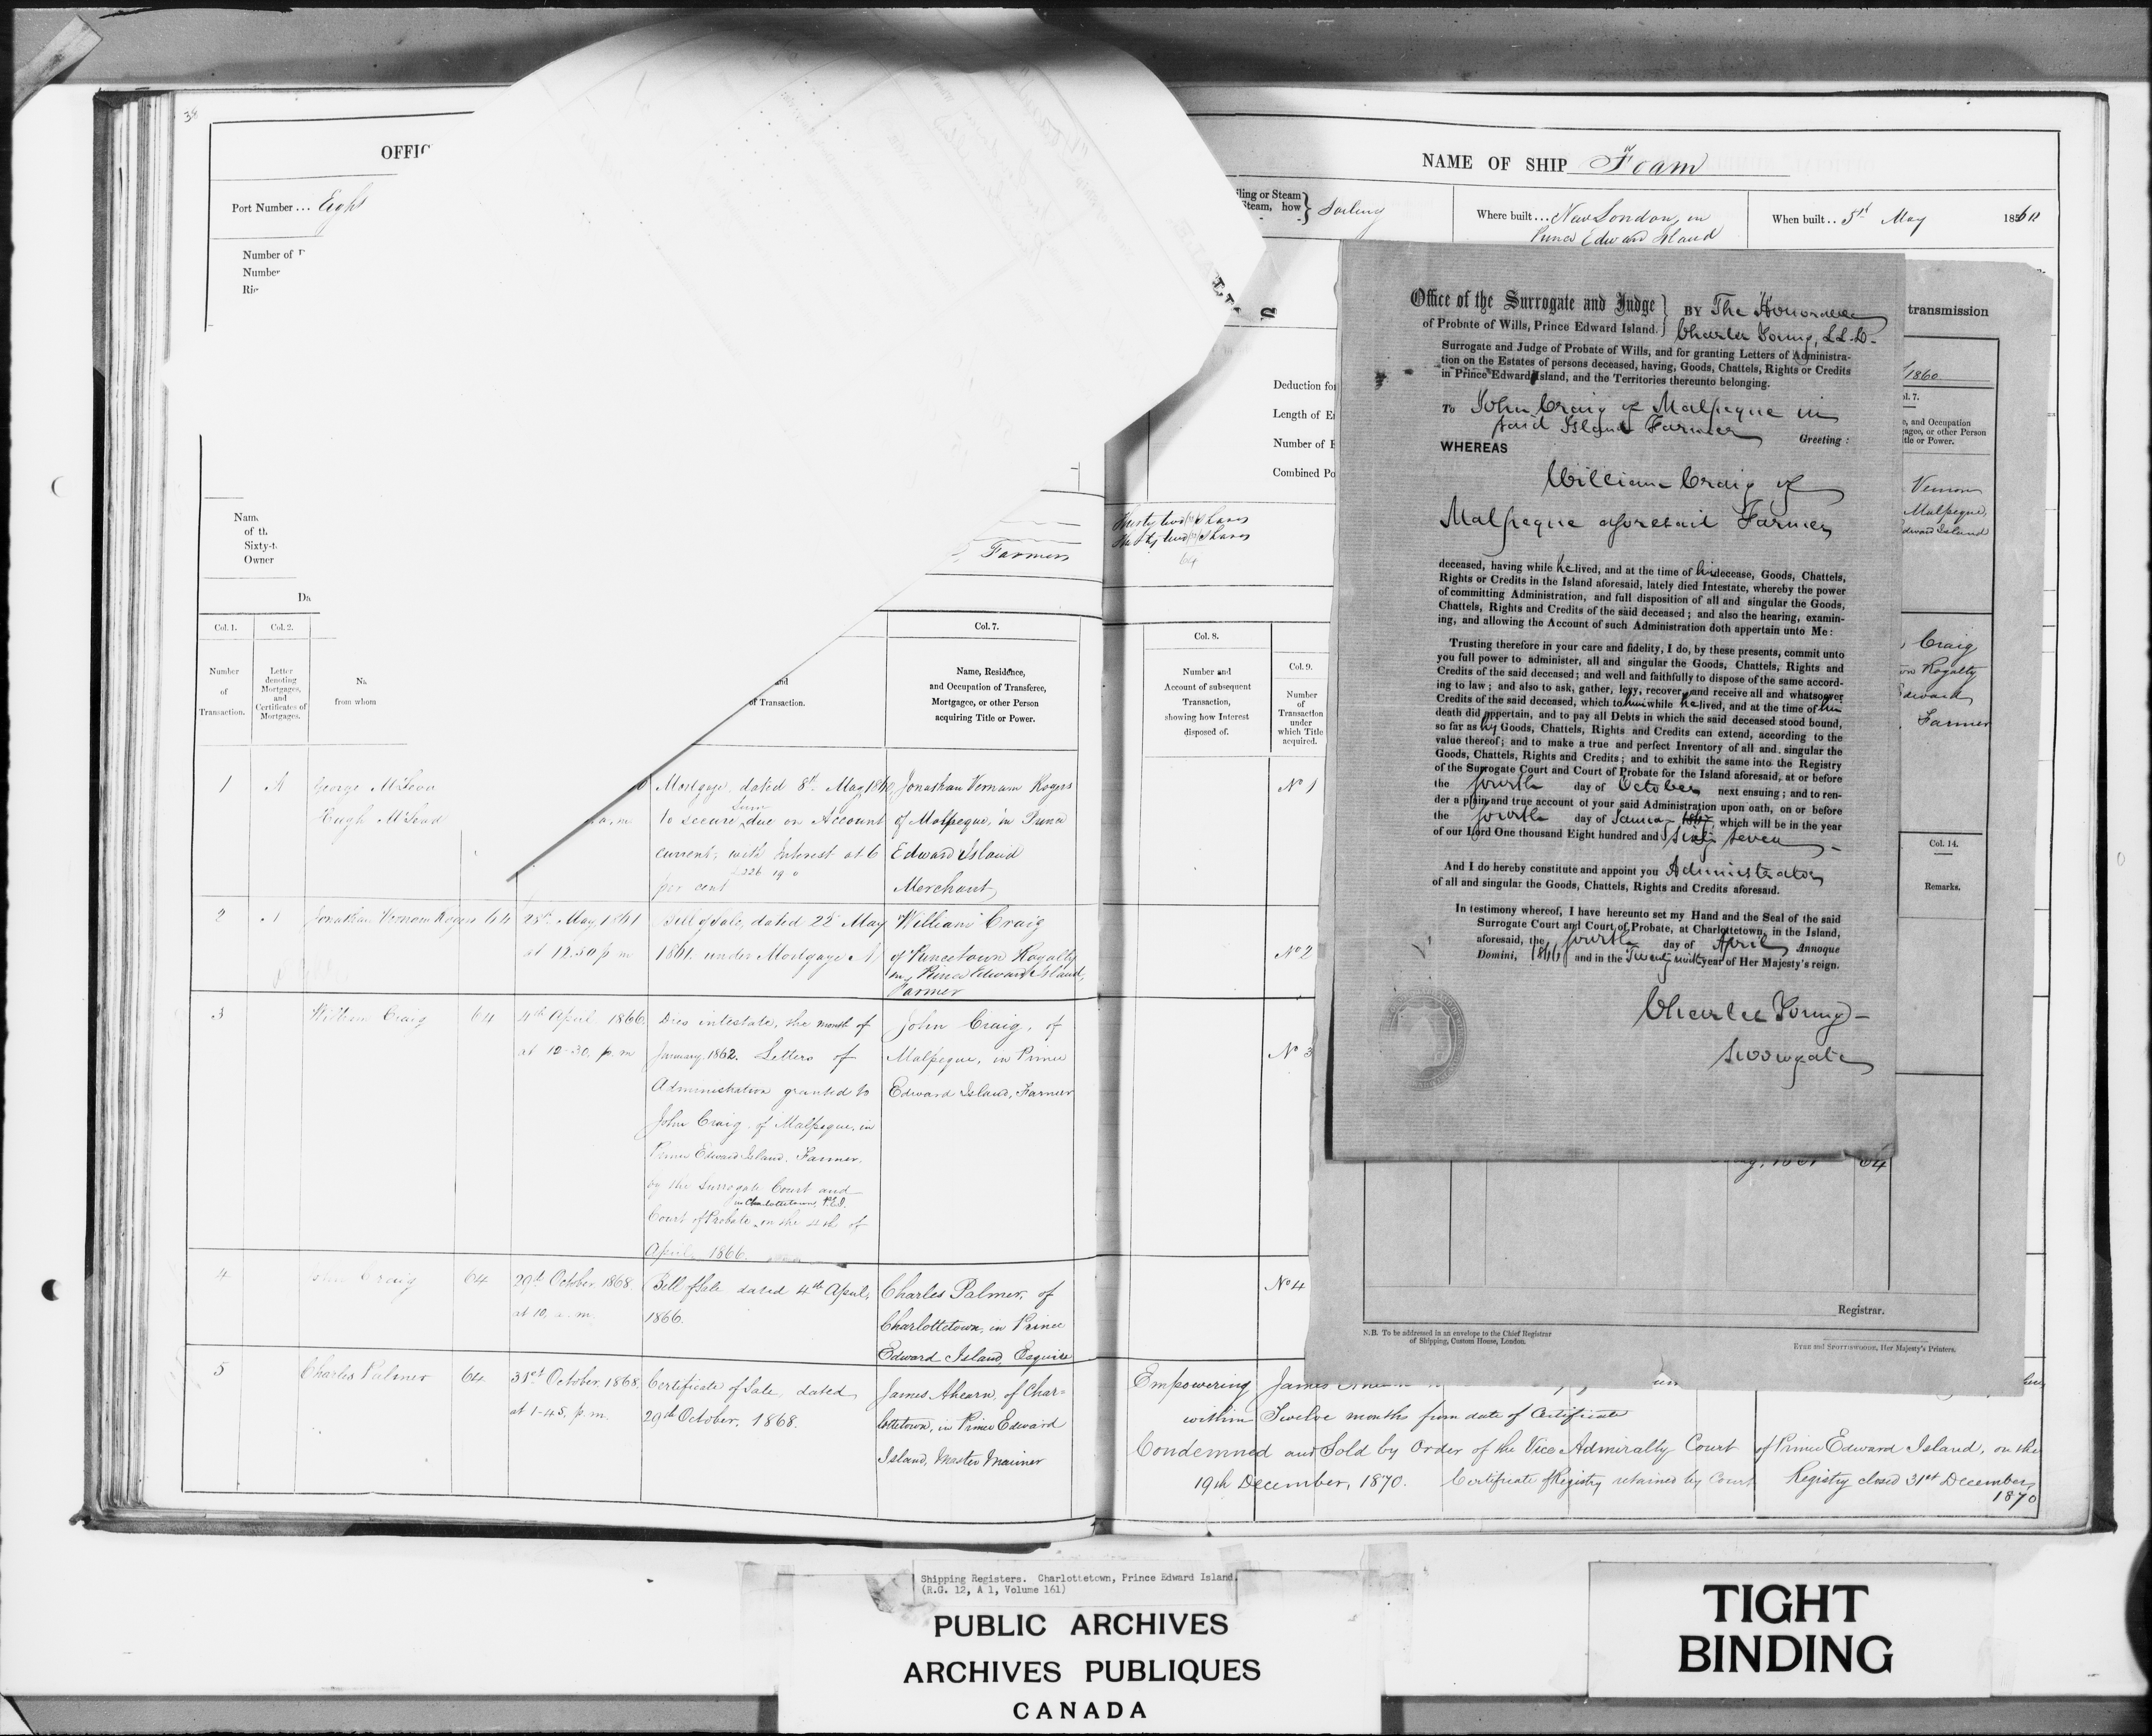 38
OFFIC
Port Number ... Eight
Number of
Number
NAME OF SHIP Foam
ling or Steam
Steam, how } Sailing
Where built ... New London, in
Prince Edward Island
When built .. 5th May 1860
Deduction for
Length of E
Number of
Combined Po
of th
Sixty-t
Owner
Farmers
Thirty two (32) Shares
Thirty two (32) Shares
64
Col. 1.
Col. 2.
Col. 7.
Col. 8.
Col. 9.
Number
of
Transaction.
Letter
denoting
Mortgages,
and
Certificates of
Mortgages.
from whom
and
of Transaction.
Name, Residence,
and Occupation of Transferee,
Mortgagee, or other Person
acquiring Title or Power.
Number and
Account of subsequent
Transaction,
showing how Interest
disposed of.
Number
of
Transaction
under
which Title
acquired.
1 George McLeod
Hugh McLeod
a.m.
Mortgage, dated 8th May 1860
to secure Sum due on Account
current; with Interest at 6
per cent
Jonathan Vernam Rogers
of Malpeque, in Prince
Edward Island
Merchant
No 1
2 Jonathan Vernom Rogers 64 28th May 1861
at 12.30 p m
Bill of Sale, dated 22d May
1861. under Mortgage A
William Craig
of Princetown Royalty
in Prince Edward Island,
Farmer
No 2
3 William Craig 64 4th April 1866
at 12-30. p.m
Dies intestate, the month of
January, 1862. Letters of
Administration granted to
John Craig of Malpeque, in
Prince Edward Island. Farmer.
by the Surrogate Court and
in Charlottetown, P.E.I.
Court of Probate on the 4th of
April 1866.
John Craig, of
Malpeque, in Prince
Edward Island, Farmer
No 3
4 John Craig 64 29th October 1868.
at 10, a.m.
Bill of Sale dated 4th April,
1866.
Charles Palmer, of
Charlottetown, in Prince
Edward Island, Esquire
No 4
5 Charles Palmer 64 31st October, 1868.
at 1-45. p.m.
Certificate of Sale, dated
29th October, 1868.
James Ahearn, of Char-
lottetown, in Prince Edward
Island, Master Mariner
Empowering James Ahearn
within Twelve months from date of Certificate
Condemned and Sold by Order of the Vice Admiralty Court of Prince Edward Island, on the
19th December, 1870. Certificate of Registry retained by Court Registry closed 31st December,
1870
Office of the Surrogate and Judge
of Probate of Wills, Prince Edward Island. }
BY The Honorable
Charles Young, LL.D.
Surrogate and Judge of Probate of Wills, and for granting Letters of Administra-
tion on the Estates of persons deceased, having, Goods, Chattels, Rights or Credits
in Prince Edward Island, and the Territories thereunto belonging.
To John Craig of Malpeque in
said Island Farmer Greeting:
WHEREAS
William Craig of
Malpeque aforesaid Farmer
deceased, having while he lived, and at the time of his decease, Goods, Chattels,
Rights or Credits in the Island aforesaid, lately died Intestate, whereby the power
of committing Administration, and full disposition of all and singular the Goods,
Chattels, Rights and Credits of the said deceased; and also the hearing, examin-
ing, and allowing the Account of such Administration doth appertain unto Me:
Trusting therefore in your care and fidelity, I do, by these presents, commit unto
you full power to administer, all and singular the Goods, Chattels, Rights and
Credits of the said deceased; and well and faithfully to dispose of the same accord-
ing to law; and also to ask, gather, levy, recover and receive all and whatsoever
Credits of the said deceased, which to him while he lived, and at the time of his
death did appertain, and to pay all Debts in which the said deceased stood bound,
so far as his Goods, Chattels, Rights and Credits can extend, according to the
value thereof; and to make a true and perfect Inventory of all and singular the
Goods, Chattels, Rights and Credits; and to exhibit the same into the Registry
of the Surrogate Court and Court of Probate for the Island aforesaid, at or before
the fourth day of October next ensuing; and to ren-
der a plain and true account of your said Administration upon oath, on or before
the fourth day of January which will be in the year
of our Lord One thousand Eight hundred and Sixty Seven
And I do hereby constitute and appoint you Administrator
of all and singular the Goods, Chattels, Rights and Credits aforesaid.
In testimony whereof, I have hereunto set my Hand and the Seal of the said
Surrogate Court and Court of Probate, at Charlottetown, in the Island,
aforesaid, the fourth day of April Annoque
Domini, 1866 and in the Twenty ninth year of Her Majesty's reign.
Charles Young
Surrogate
transmission
1860
l. 7.
e, and Occupation
agee, or other Person
tle or Power.
Vernon
Malpeque,
dward Island
Craig
on Royalty
Edward
Farmer
Col. 14.
Remarks.
64
Registrar.
N.B. To be addressed in an envelope to the Chief Registrar
of Shipping, Custom House, London.
EYRE and SPOTTISWOODE, Her Majesty's Printers.
Shipping Registers. Charlottetown, Prince Edward Island.
(R.G. 12, A 1, Volume 161)
PUBLIC ARCHIVES
ARCHIVES PUBLIQUES
CANADA
TIGHT
BINDING